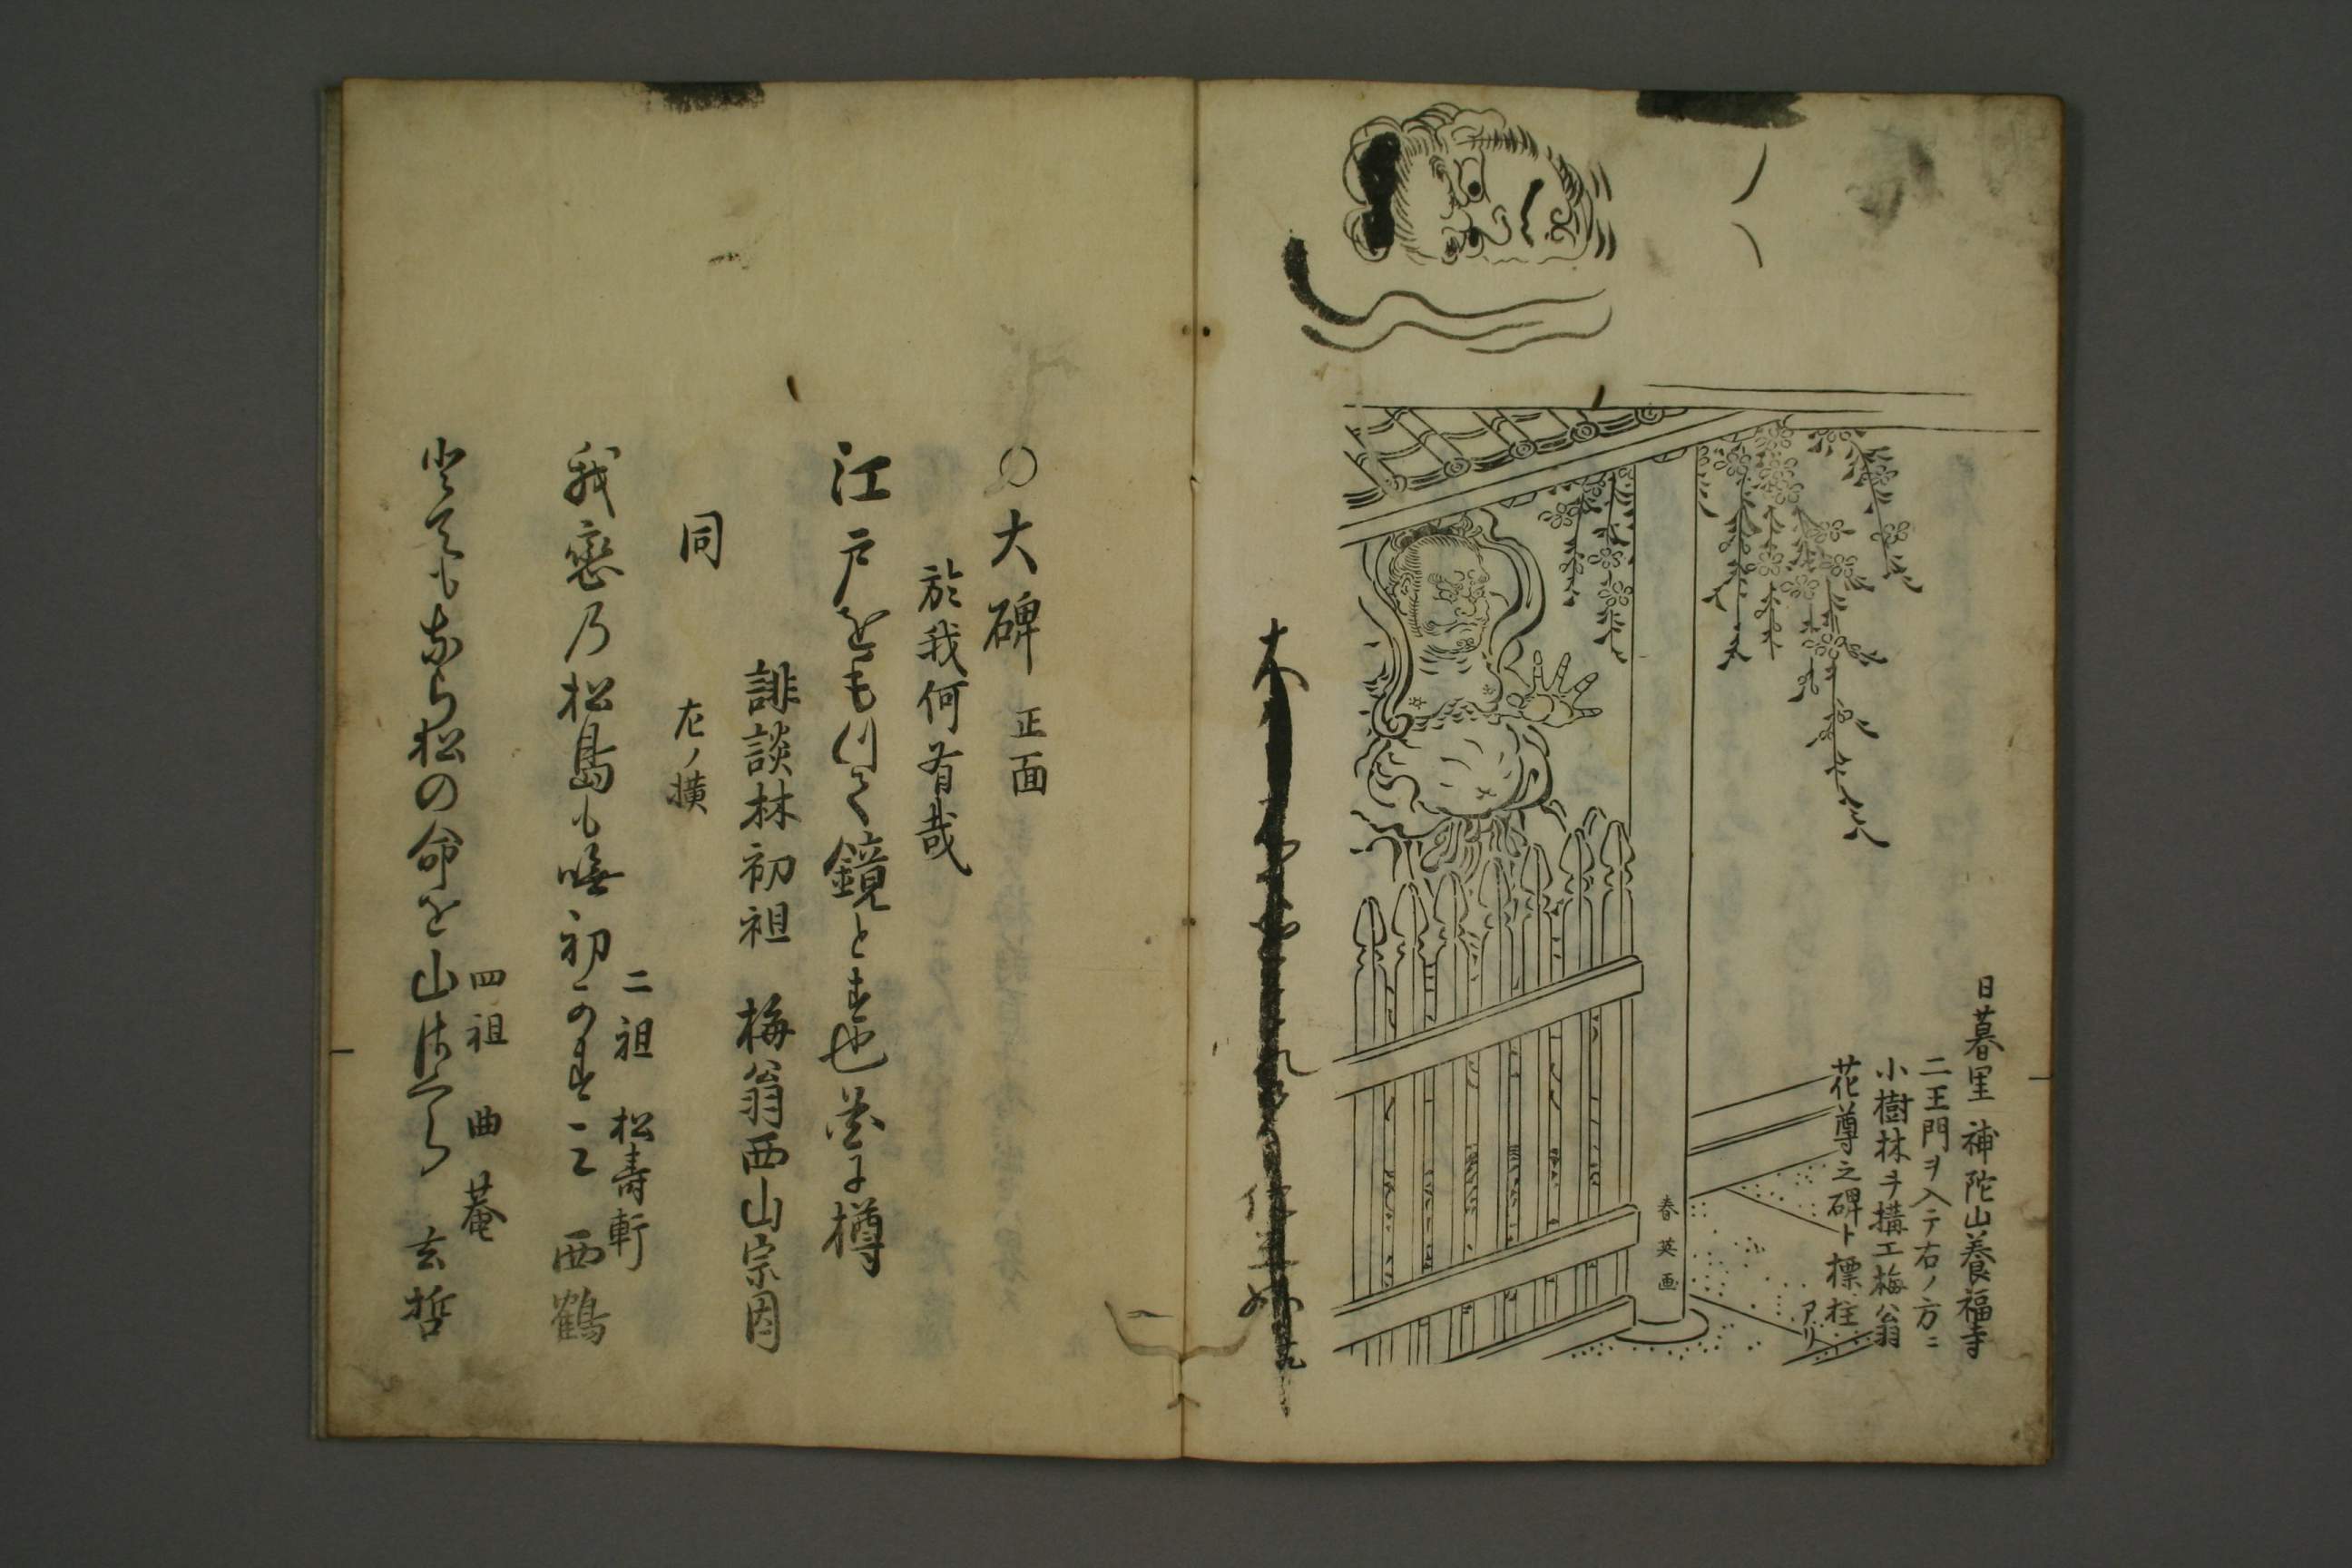 日暮里 補陀山養福寺
二王門ヲ入テ右ノ方ニ
小樹林ヲ搆エ梅翁
花尊之碑ト標柱
アリ
春英画
〇大碑 正面
於我何有哉
江戸をもつて鏡とす也花に樽
誹談林初祖 梅翁西山宗因
同 左ノ横
二祖 松壽軒
我恋乃松島も嘸初かすミ 西鶴
四祖 曲菴
松の命を山 玄哲